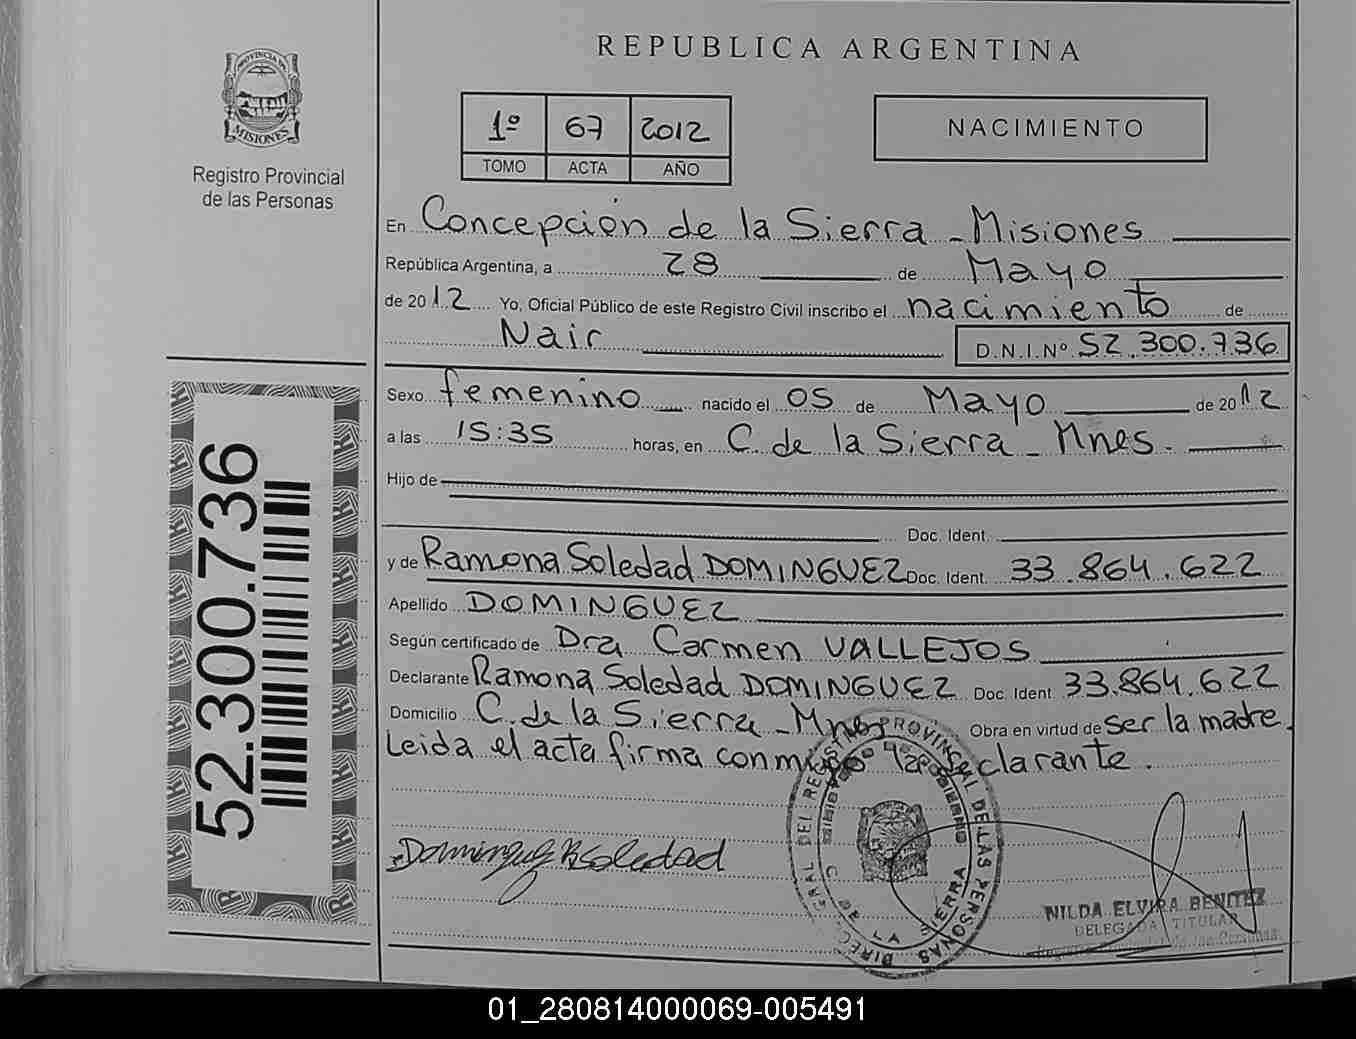 REPUBLICA ARGENTINA
PROVINCIA DE
MISIONES
Registro Provincial
de las Personas
1º 67 2012
TOMO ACTA AÑO
NACIMIENTO
En Concepción de la Sierra - Misiones
República Argentina, a 28 de Mayo
de 2012 Yo, Oficial Público de este Registro Civil inscribo el nacimiento de
Nair D.N.I.Nº 52.300.736
Sexo femenino nacido el 05 de Mayo de 2012
a las 15:35 horas, en C. de la Sierra - Mnes.
Hijo de
Doc. Ident.
y de Ramona Soledad DOMINGUEZ Doc. Ident. 33.864.622
Apellido DOMINGUEZ
Según certificado de Dra Carmen VALLEJOS
Declarante Ramona Soledad DOMINGUEZ Doc. Ident 33.864.622
Domicilio C. de la Sierra - Mnes Obra en virtud de ser la madre.
Leida el acta firma conmigo la declarante.
52.300.736
Dominguez R Soledad
DIREC. GRAL DEL REGISTRO PROVINCIAL DE LAS PERSONAS
C. DE LA SIERRA
NILDA ELVIRA BENITEZ
DELEGADA TITULAR
Registro Provincial de las Personas
01_280814000069-005491